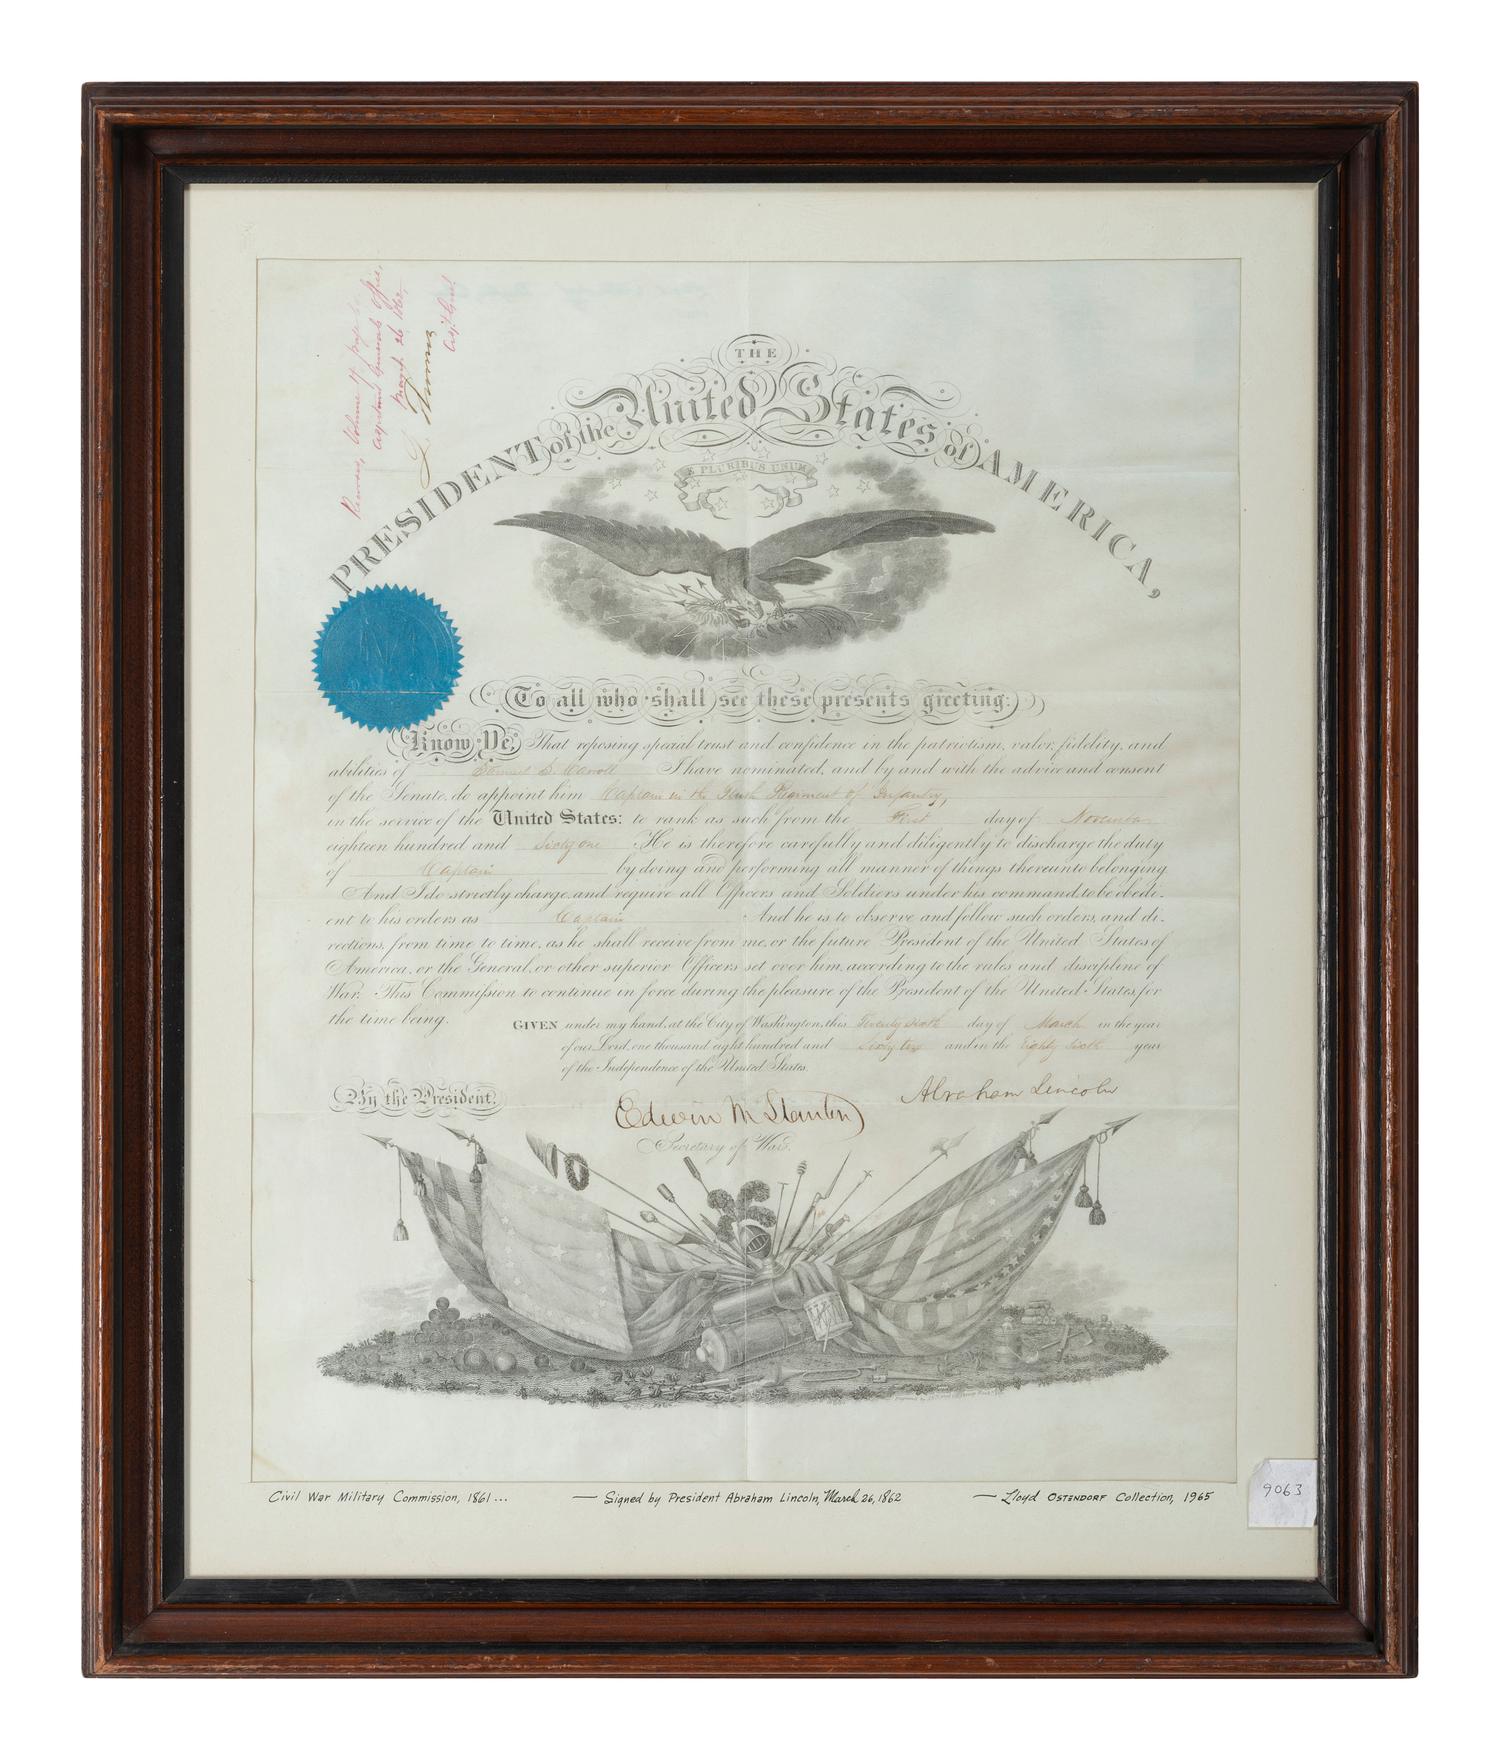 THE
PRESIDENT of the United States of AMERICA,
E PLURIBUS UNUM
Assistant General's Office,
March 26 1862
L. Thomas
To all who shall see these presents greeting:
Know Ye, That reposing special trust and confidence in the patriotism, valor, fidelity, and
abilities of Samuel S. Carroll I have nominated, and by and with the advice and consent
of the Senate, do appoint him Captain in the Tenth Regiment of Infantry,
in the service of the United States: to rank as such from the First day of November
eighteen hundred and Sixty one He is therefore carefully and diligently to discharge the duty
of Captain by doing and performing all manner of things thereunto belonging
And I do strictly charge, and require all Officers and Soldiers under his command to be obedi-
ent to his orders as Captain And he is to observe and follow such orders, and di-
rections, from time to time, as he shall receive from me, or the future President of the United States of
America, or the General, or other superior Officers set over him, according to the rules and discipline of
War. This Commission to continue in force during the pleasure of the President of the United States, for
the time being.
GIVEN under my hand, at the City of Washington, this Twenty sixth day of March in the year
of our Lord, one thousand eight hundred and Sixty two and in the Eighty sixth year
of the Independence of the United States.
By the President.
Abraham Lincoln
Edwin M Stanton
Secretary of War.
Civil War Military Commission, 1861... — Signed by President Abraham Lincoln, March 26, 1862 — Lloyd OSTENDORF Collection, 1965
9063